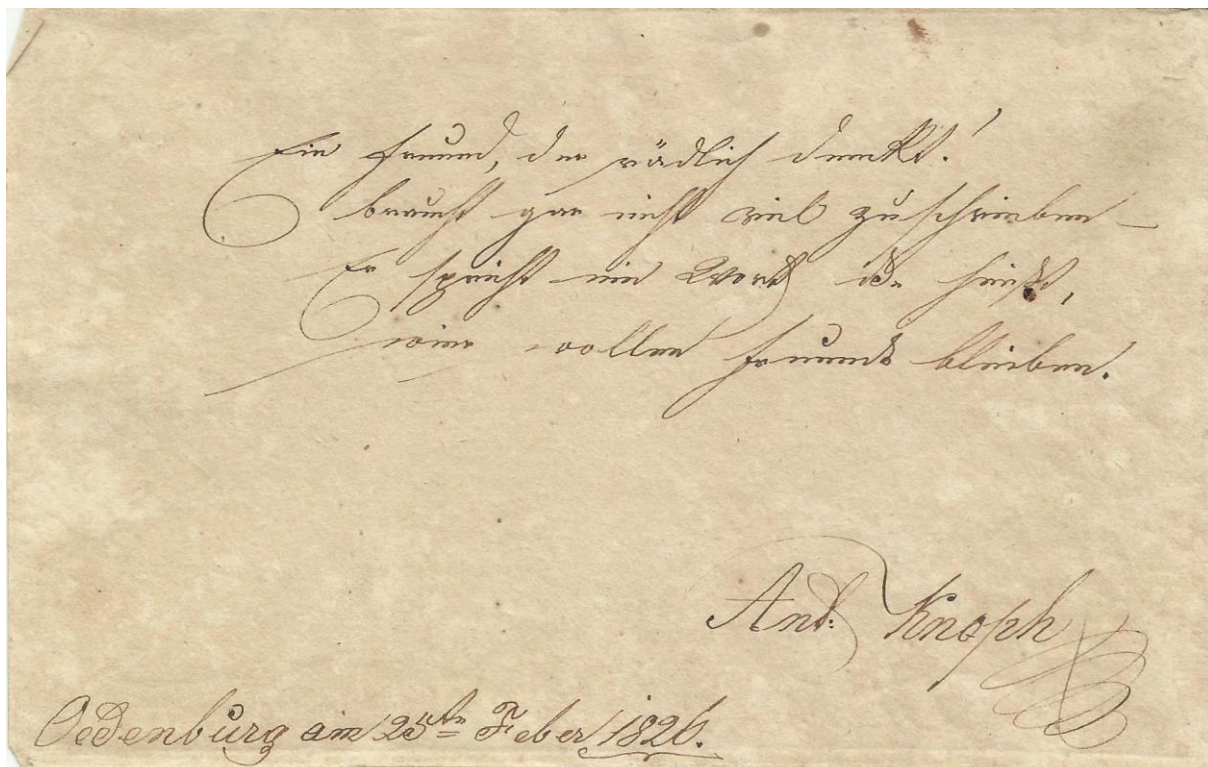 Ein Freund, der rädlich denckt!
braucht gar nicht viel zuschreiben –
Er spricht ein Wort u.
wier wollen Freunde bleiben.
Ant. Knoph
Oedenburg am 25ten Feber 1826.